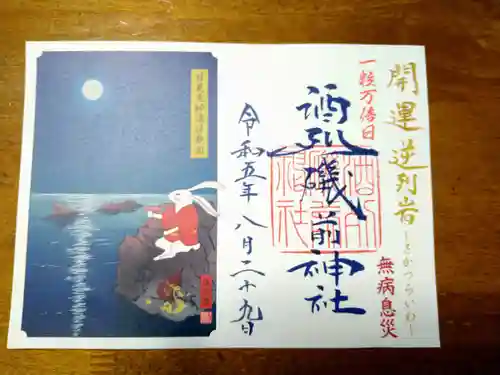 開運 逆列岩
ーさかつらいわー
無病息災
一粒万倍日
酒列磯前神社
令和五年八月二十九日